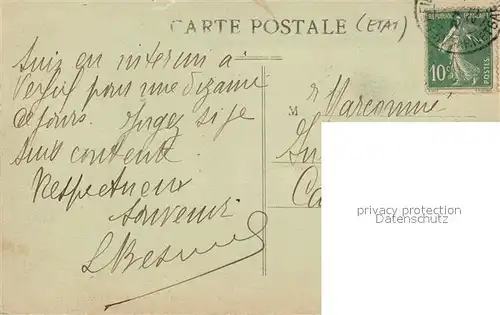 CARTE POSTALE (ETAT)
REPUBLIQUE FRANÇAISE
10c
POSTES
Suis en interim à
pour une dizaine
de jours. Jugez si je
suis contente.
Respectueux
souvenir
M
privacy protection
Datenschutz